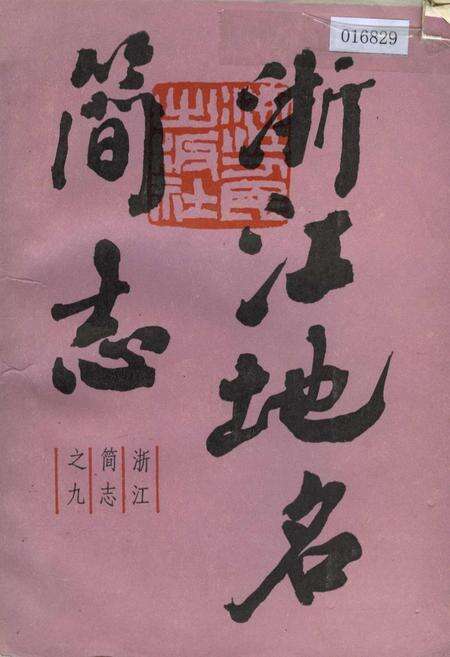 016829
浙江地名
简志
浙江
简志
之九
浙江人民
出版社